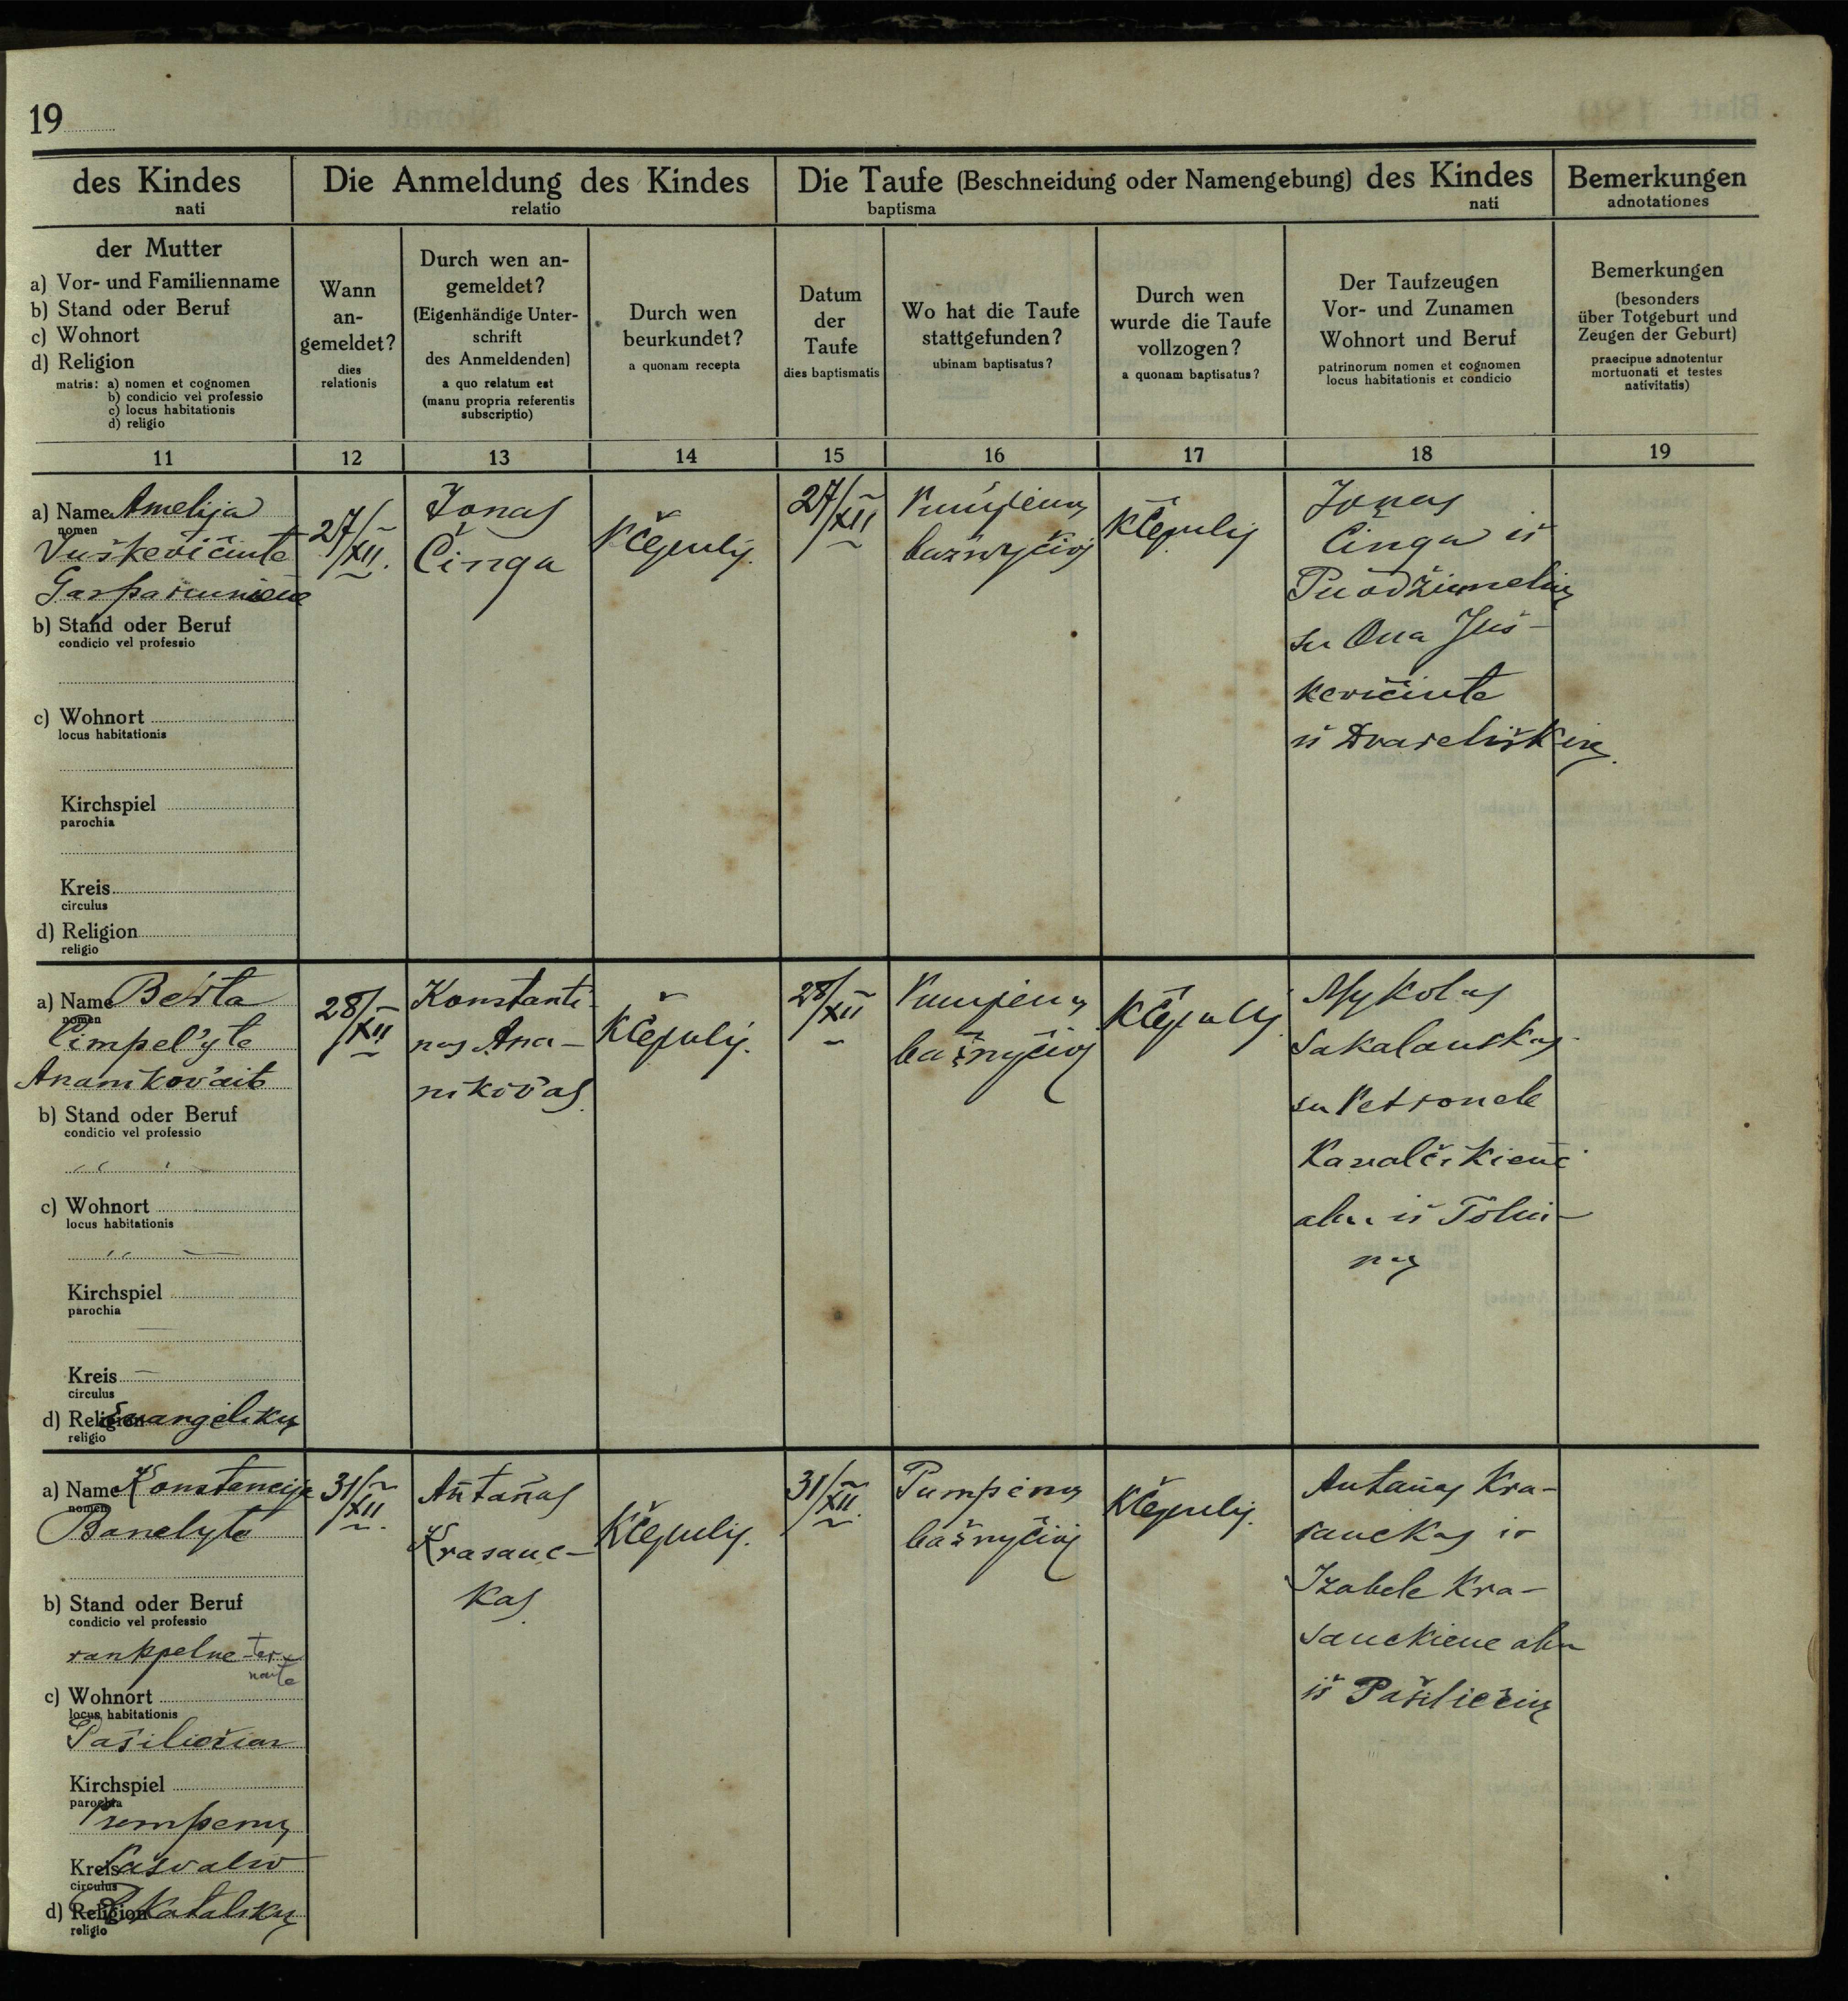 19
des Kindes
nati
Die Anmeldung des Kindes
relatio
Die Taufe (Beschneidung oder Namengebung) des Kindes
baptisma nati
Bemerkungen
adnotationes
der Mutter
a) Vor- und Familienname
b) Stand oder Beruf
c) Wohnort
d) Religion
matris: a) nomen et cognomen
b) condicio vel professio
c) locus habitationis
d) religio
Wann
an-
gemeldet?
dies
relationis
Durch wen an-
gemeldet?
(Eigenhändige Unter-
schrift
des Anmeldenden)
a quo relatum est
(manu propria referentis
subscriptio)
Durch wen
beurkundet?
a quonam recepta
Datum
der
Taufe
dies baptismatis
Wo hat die Taufe
stattgefunden?
ubinam baptisatus?
Durch wen
wurde die Taufe
vollzogen?
a quonam baptisatus?
Der Taufzeugen
Vor- und Zunamen
Wohnort und Beruf
patrinorum nomen et cognomen
locus habitationis et condicio
Bemerkungen
(besonders
über Totgeburt und
Zeugen der Geburt)
praecipue adnotentur
mortuonati et testes
nativitatis)
11 12 13 14 15 16 17 18 19
a) Name Amelija
nomen
Juškevičiute
b) Stand oder Beruf
condicio vel professio
c) Wohnort
locus habitationis
Kirchspiel
parochia
Kreis
circulus
d) Religion
religio
27/XII.
Jonas
Činga
KČepulis.
27/XII
Pumpėnų
bažnyčioj
KČepulis
Jonas
Činga iš
Puodžiunelių
su Ona Juš-
kevičiute
iš Dvareliškių.
a) Name Berta
nomen
Cimpel'yte
b) Stand oder Beruf
condicio vel professio
c) Wohnort
locus habitationis
Kirchspiel
parochia
Kreis
circulus
d) Religion Evangelikų
religio
28/XII
Konstanti-
nas Ana-
nikovas
KČepulis.
28/XII
Pumpėnų
bažnyčioj
KČepulis
Mykolas
Sakalauskas
su Petronele
abu iš
a) Name Konstancija
nomen
Banelyte
b) Stand oder Beruf
condicio vel professio
rankpelne-tar-
naite
c) Wohnort
locus habitationis
Pašiliečiai
Kirchspiel
parochia
Pumpenų
Kreis Pasvalio
circulus
d) Religion R Katalikų
religio
31/XII.
Antanas
Krasauc-
kas
KČepulis.
31/XII.
Pumpėnų
bažnyčioj
KČepulis.
Antanas Kra-
sauckas ir
Izabele Kra-
sauckiene abu
iš Pašiliečių